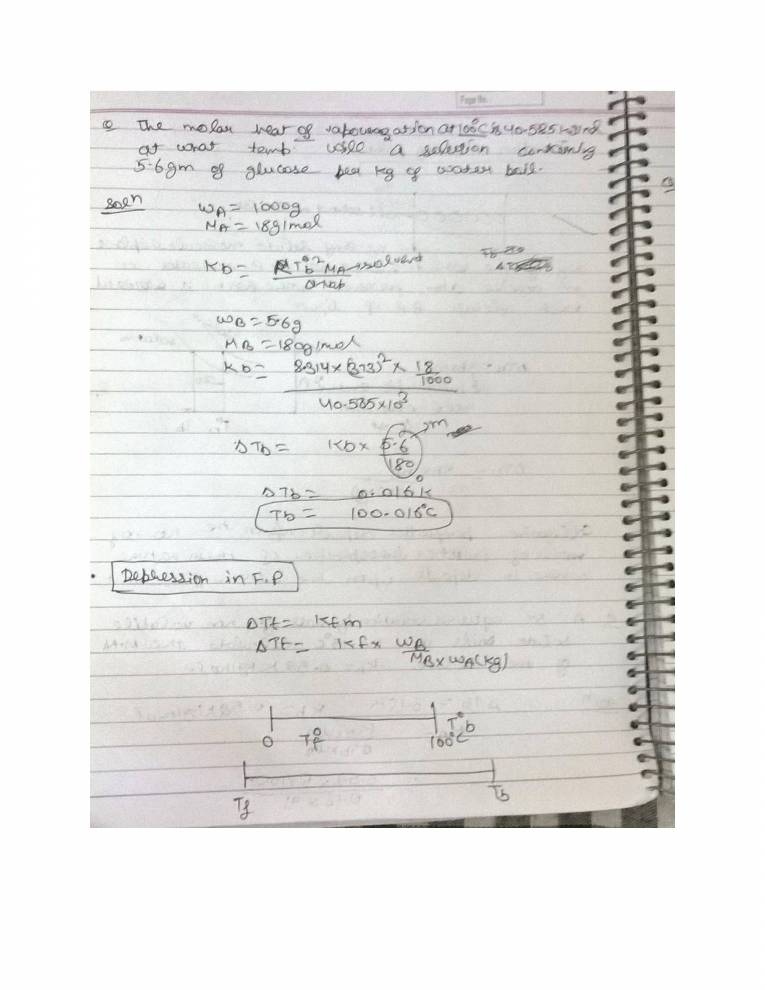 Page No.
Q The molar heat of vapourization at 100°C is 40.585 KJ/mol
at what temp. will a solution containing
5.6gm of glucose per kg of water boil.
Soln
WA = 1000g
MA = 18g/mol
Kb = RTb°² MA → solvent
ΔHvap
WB = 5.6g
MB = 180g/mol
Kb = 8.314 × (373)² × 18/1000
40.585 × 10³
ΔTb = Kb × 5.6/180 → m
ΔTb = 0.016K
Tb = 100.016°C
• Depression in F.P
ΔTf = Kf m
ΔTf = Kf × WB
MB × WA (kg)
0 T°f 100°C T°b
Tf Tb